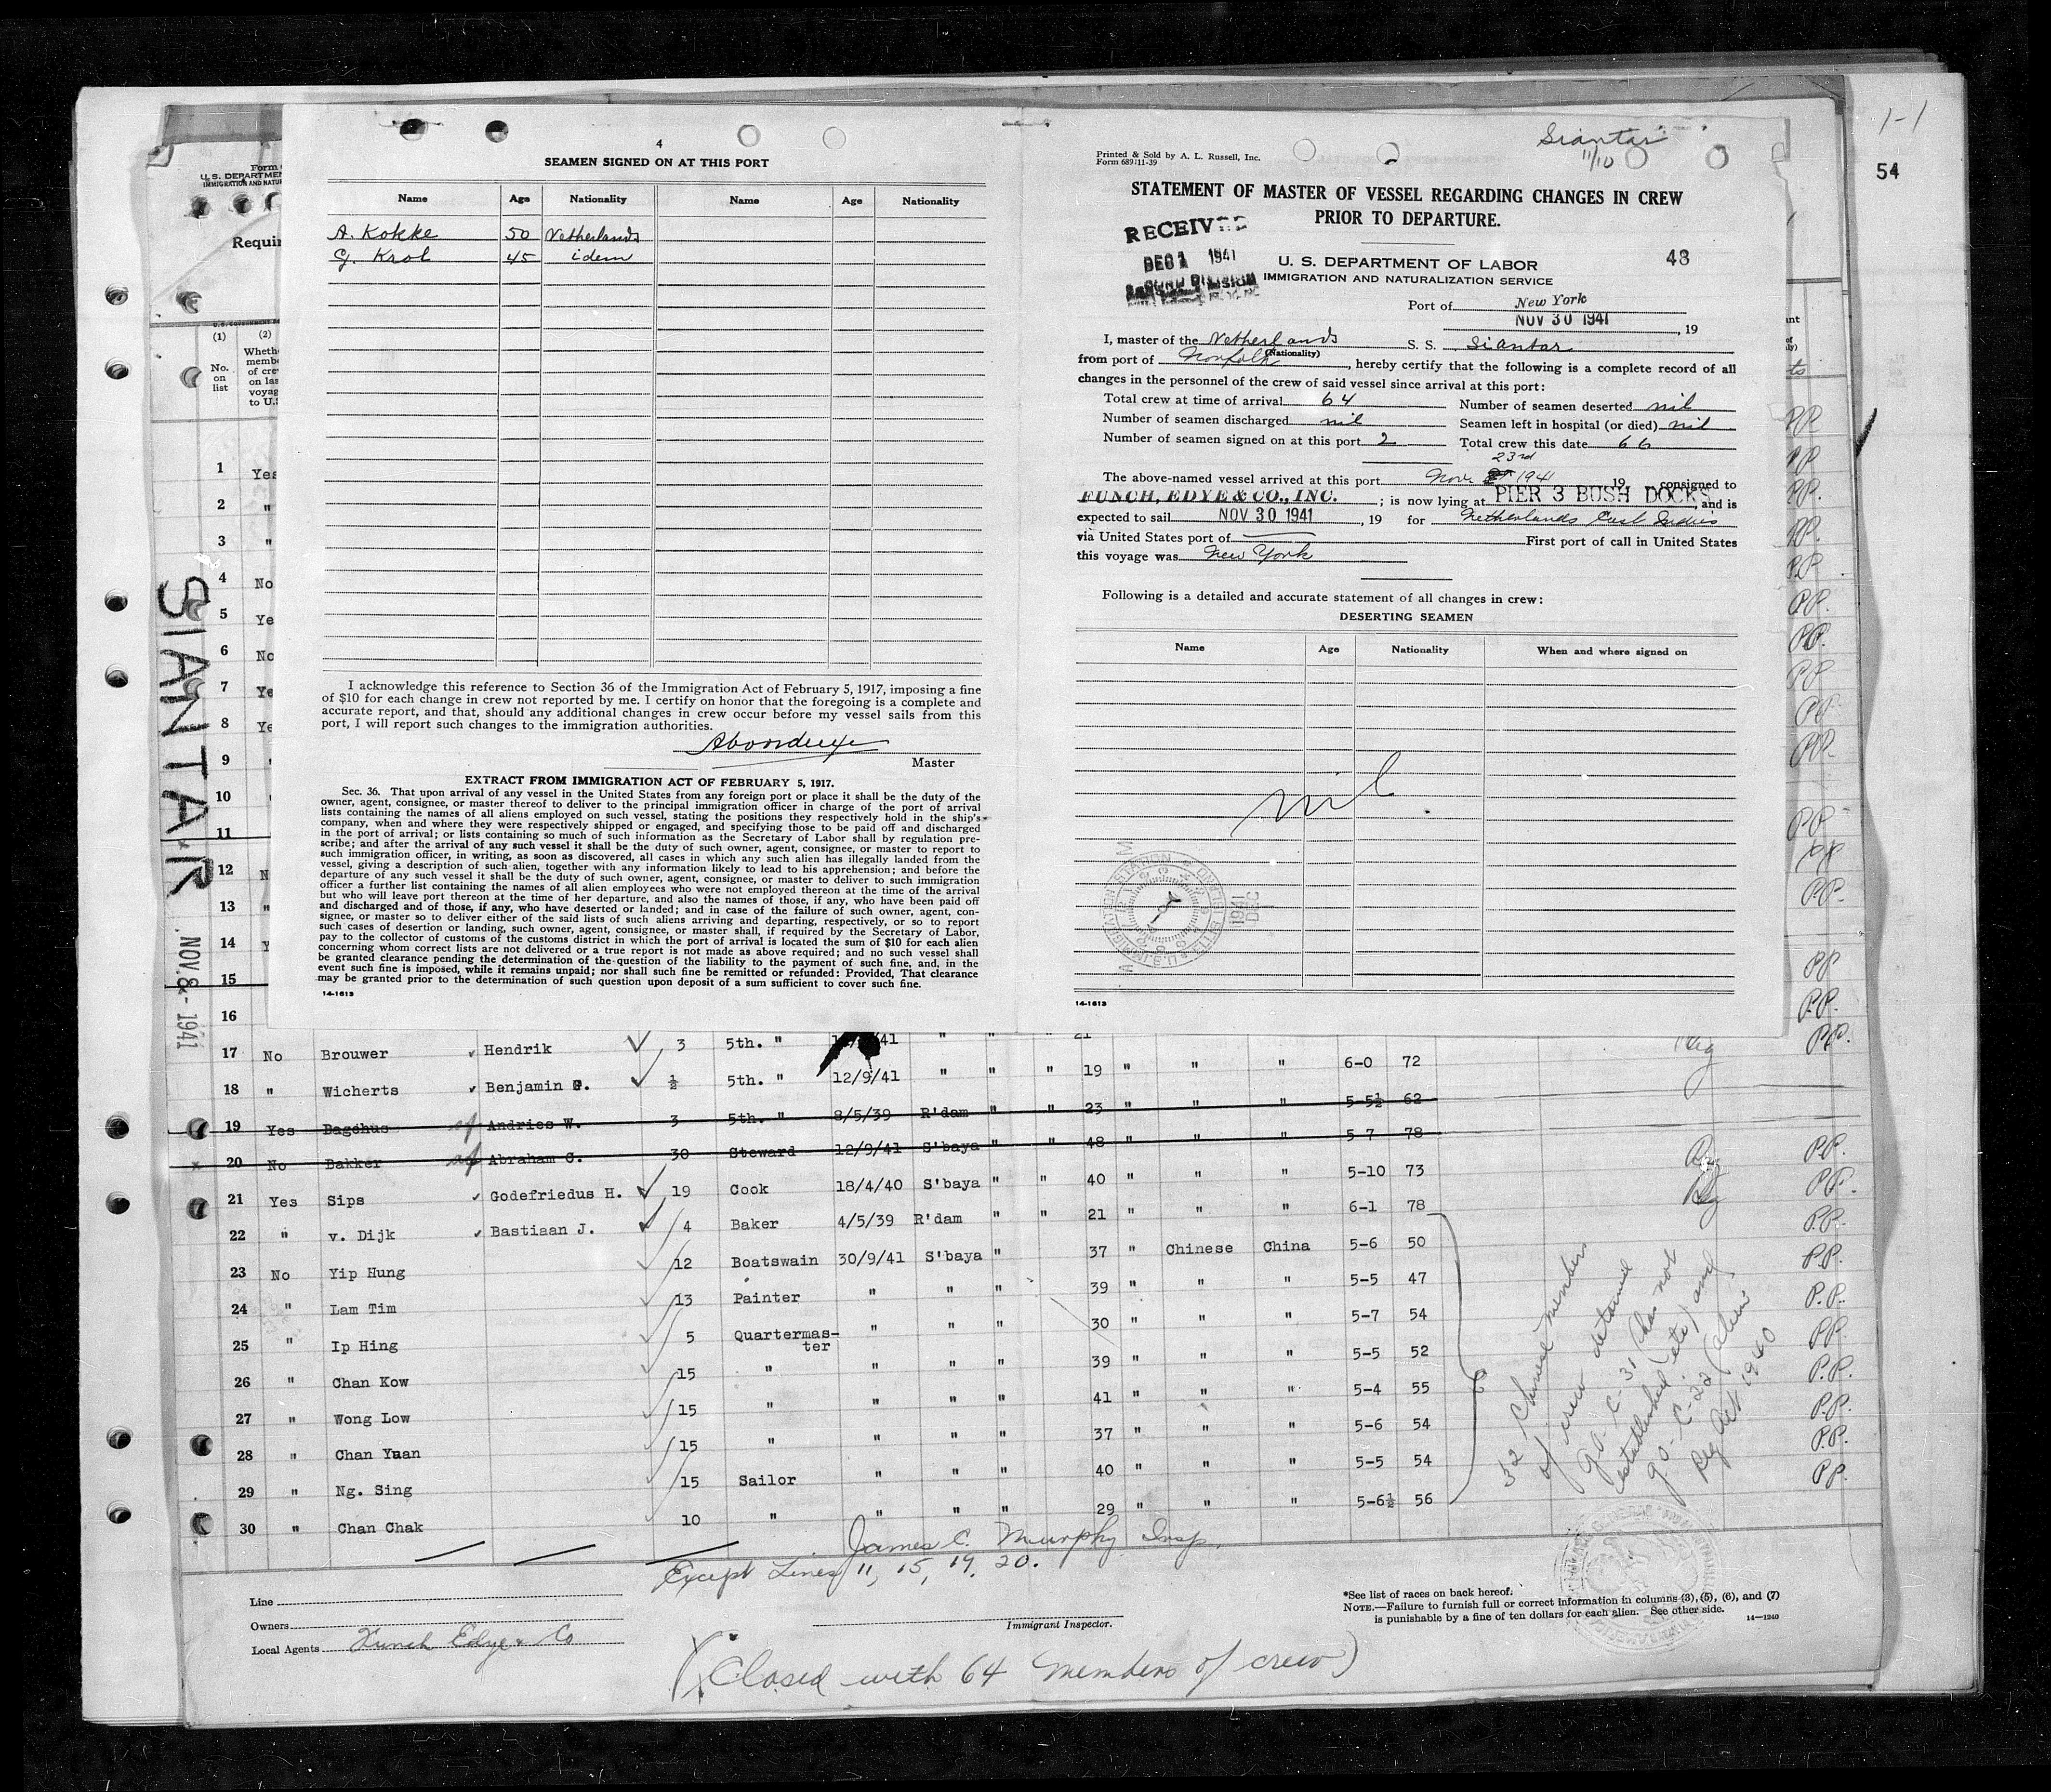 1-1
54
Siantar
11/10
4
SEAMEN SIGNED ON AT THIS PORT
Name Age Nationality Name Age Nationality
A. Kokke 50 Netherlands
G. Krol 45 idem
I acknowledge this reference to Section 36 of the Immigration Act of February 5, 1917, imposing a fine
of $10 for each change in crew not reported by me. I certify on honor that the foregoing is a complete and
accurate report, and that, should any additional changes in crew occur before my vessel sails from this
port, I will report such changes to the immigration authorities.
Master
EXTRACT FROM IMMIGRATION ACT OF FEBRUARY 5, 1917.
Sec. 36. That upon arrival of any vessel in the United States from any foreign port or place it shall be the duty of the
owner, agent, consignee, or master thereof to deliver to the principal immigration officer in charge of the port of arrival
lists containing the names of all aliens employed on such vessel, stating the positions they respectively hold in the ship's
company, when and where they were respectively shipped or engaged, and specifying those to be paid off and discharged
in the port of arrival; or lists containing so much of such information as the Secretary of Labor shall by regulation pre-
scribe; and after the arrival of any such vessel it shall be the duty of such owner, agent, consignee, or master to report to
such immigration officer, in writing, as soon as discovered, all cases in which any such alien has illegally landed from the
vessel, giving a description of such alien, together with any information likely to lead to his apprehension; and before the
departure of any such vessel it shall be the duty of such owner, agent, consignee, or master to deliver to such immigration
officer a further list containing the names of all alien employees who were not employed thereon at the time of the arrival
but who will leave port thereon at the time of her departure, and also the names of those, if any, who have been paid off
and discharged and of those, if any, who have deserted or landed; and in case of the failure of such owner, agent, con-
signee, or master so to deliver either of the said lists of such aliens arriving and departing, respectively, or so to report
such cases of desertion or landing, such owner, agent, consignee, or master shall, if required by the Secretary of Labor,
pay to the collector of customs of the customs district in which the port of arrival is located the sum of $10 for each alien
concerning whom correct lists are not delivered or a true report is not made as above required; and no such vessel shall
be granted clearance pending the determination of the question of the liability to the payment of such fine, and, in the
event such fine is imposed, while it remains unpaid; nor shall such fine be remitted or refunded: Provided, That clearance
may be granted prior to the determination of such question upon deposit of a sum sufficient to cover such fine.
14-1613
Printed & Sold by A. L. Russell, Inc.
Form 689:11-39
STATEMENT OF MASTER OF VESSEL REGARDING CHANGES IN CREW
PRIOR TO DEPARTURE.
RECEIVED
DEC 1 1941
U. S. DEPARTMENT OF LABOR 48
IMMIGRATION AND NATURALIZATION SERVICE
Port of New York
NOV 30 1941, 19
I, master of the Netherlands S. S. Siantar
(Nationality)
from port of Norfolk, hereby certify that the following is a complete record of all
changes in the personnel of the crew of said vessel since arrival at this port:
Total crew at time of arrival 64 Number of seamen deserted nil
Number of seamen discharged nil Seamen left in hospital (or died) nil
Number of seamen signed on at this port 2 Total crew this date 66
23rd
The above-named vessel arrived at this port Nov. 1941 19 consigned to
FUNCH, EDYE & CO., INC. ; is now lying at PIER 3 BUSH DOCKS, and is
expected to sail NOV 30 1941, 19 for Netherlands East Indies
via United States port of First port of call in United States
this voyage was New York
Following is a detailed and accurate statement of all changes in crew:
DESERTING SEAMEN
Name Age Nationality When and where signed on
nil
1941
DEC
14-1613
Form
U. S. DEPARTMEN
IMMIGRATION AND NATU
Requir
(1) (2)
No. on list
Wheth
memb
of cre
on las
voyag
to U.S
SIANTAR
NOV. 8 - 1941
1 Yes
2 "
3 "
4 No
5 Ye
6 No
7 Ye
8 Ye
9
10
11
12 N
13 "
14 Y
15
16
17 No Brouwer Hendrik 3 5th. " 41 " " " 21
18 " Wicherts Benjamin 1/2 5th. " 12/9/41 " " " 19 " " " 6-0 72
19 Yes Bagchus Andries W. 3 5th. " 8/5/39 R'dam " " 23 " " " 5-5½ 62
20 No Bakker Abraham C. 30 Steward 12/9/41 S'baya " " 48 " " " 5-7 78
21 Yes Sips Godefriedus H. 19 Cook 18/4/40 S'baya " " 40 " " " 5-10 73
22 " v. Dijk Bastiaan J. 4 Baker 4/5/39 R'dam " " 21 " " " 6-1 78
23 No Yip Hung 12 Boatswain 30/9/41 S'baya " 37 " Chinese China 5-6 50
24 " Lam Tim 13 Painter " " " 39 " " " 5-5 47
25 " Ip Hing 5 Quartermas-ter " " " 30 " " 5-7 54
26 " Chan Kow 15 " " " " 39 " " " 5-5 52
27 " Wong Low 15 " " " " 41 " " " 5-4 55
28 " Chan Yuan 15 " " " " 37 " " " 5-6 54
29 " Ng. Sing 15 Sailor " " " 40 " " " 5-5 54
30 " Chan Chak 10 " " " " 29 " " " 5-6½ 56
32 Chinese members
of crew detained
G.O. C-31 has not
established (etc) and
G.O. C-22 (alien
Reg Act 1940
James C. Murphy Insp.
Except Lines 11, 15, 19, 20.
Line
Owners
Local Agents Funch Edye & Co
Immigrant Inspector.
*See list of races on back hereof.
NOTE.—Failure to furnish full or correct information in columns (3), (5), (6), and (7)
is punishable by a fine of ten dollars for each alien. See other side. 14—1240
(Closed with 64 members of crew)